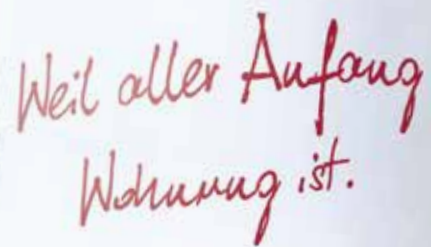 Weil aller Anfang
Wohnung ist.